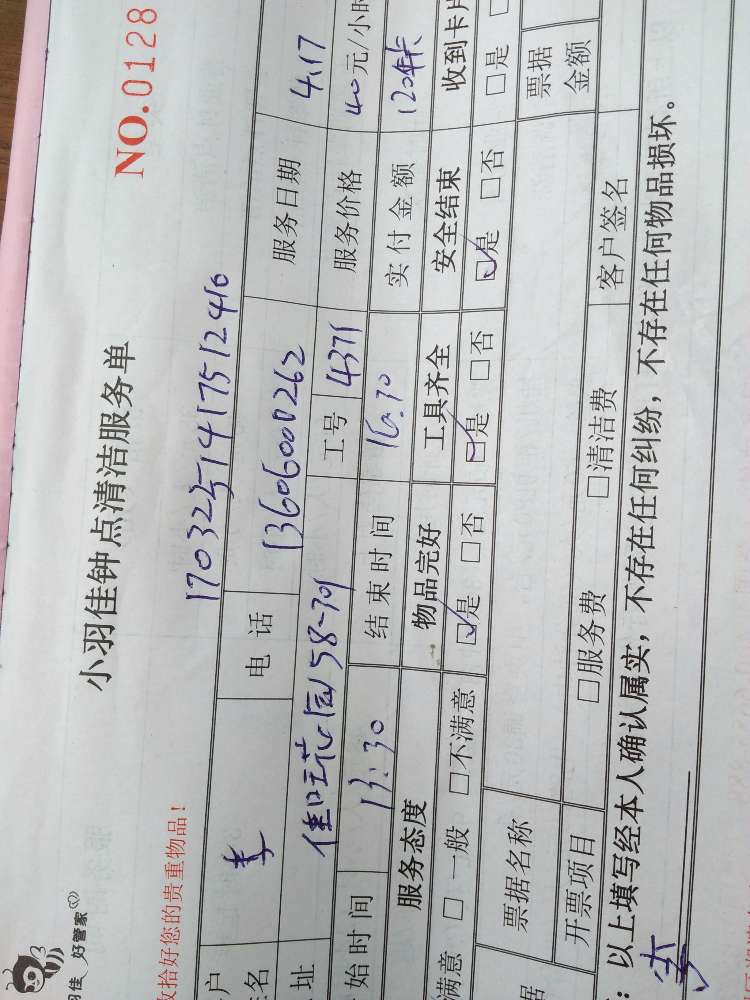 羽佳 好管家
小羽佳钟点清洁服务单
NO.0128
收拾好您的贵重物品!
1703251417512410
户 李 电话 13606000262 服务日期 4.17
址 58-301 工号 4371 服务价格 40元/小时
始时间 13:30 结束时间 16:30 实付金额 120
服务态度 物品完好 工具齐全 安全结束 收到卡片
满意 □一般 □不满意 ☑是 □否 ☑是 □否 ☑是 □否 □是
据 票据名称 票据金额
开票项目 □服务费 □清洁费 客户签名
:以上填写经本人确认属实,不存在任何纠纷,不存在任何物品损坏。
李